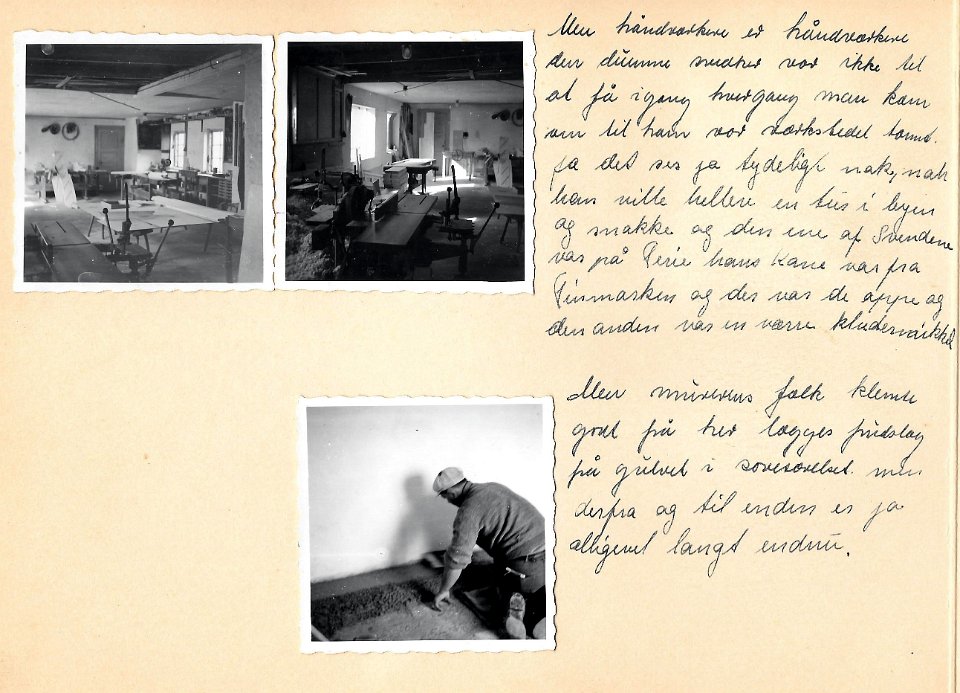 Men håndværkere er håndværkere
den dumme snedker var ikke til
at få igang hvergang man kom
om til ham var værkstedet tomt.
ja det ses ja tydeligt nok, nah
han ville hellere en tur i byen
og snakke og den ene af Svendene
var på Ferie hans Kone var fra
Finmarken og der var de oppe og
den anden var en værre kludermikkel
Men murerens folk klemte
godt på her lægges pudslag
på gulvet i soveværelset. men
derfra og til enden er ja
alligevel langt endnu.